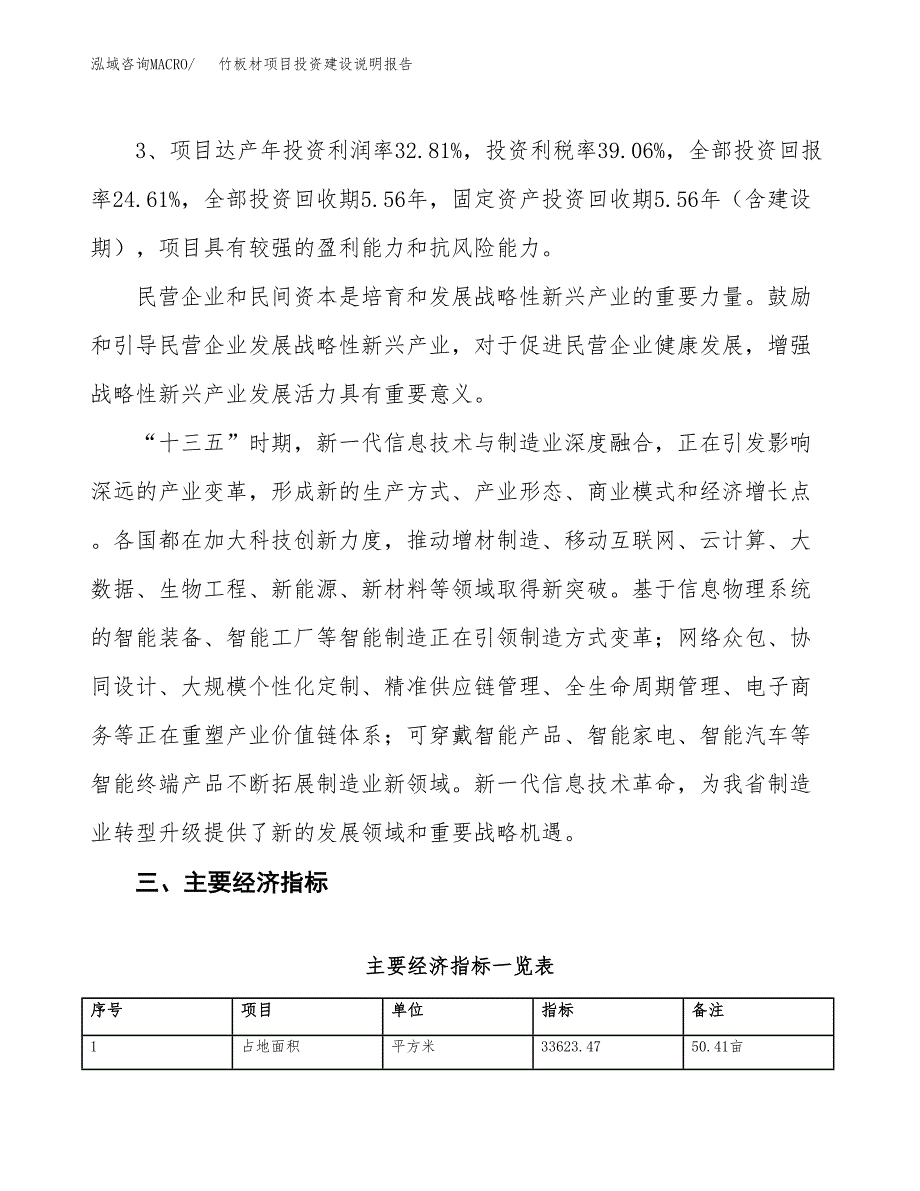 泓域咨询MACRO/ 竹板材项目投资建设说明报告
3、项目达产年投资利润率32.81%，投资利税率39.06%，全部投资回报
率24.61%，全部投资回收期5.56年，固定资产投资回收期5.56年（含建设
期），项目具有较强的盈利能力和抗风险能力。
民营企业和民间资本是培育和发展战略性新兴产业的重要力量。鼓励
和引导民营企业发展战略性新兴产业，对于促进民营企业健康发展，增强
战略性新兴产业发展活力具有重要意义。
“十三五”时期，新一代信息技术与制造业深度融合，正在引发影响
深远的产业变革，形成新的生产方式、产业形态、商业模式和经济增长点
。各国都在加大科技创新力度，推动增材制造、移动互联网、云计算、大
数据、生物工程、新能源、新材料等领域取得新突破。基于信息物理系统
的智能装备、智能工厂等智能制造正在引领制造方式变革；网络众包、协
同设计、大规模个性化定制、精准供应链管理、全生命周期管理、电子商
务等正在重塑产业价值链体系；可穿戴智能产品、智能家电、智能汽车等
智能终端产品不断拓展制造业新领域。新一代信息技术革命，为我省制造
业转型升级提供了新的发展领域和重要战略机遇。
三、主要经济指标
主要经济指标一览表
序号 项目 单位 指标 备注
1 占地面积 平方米 33623.47 50.41亩